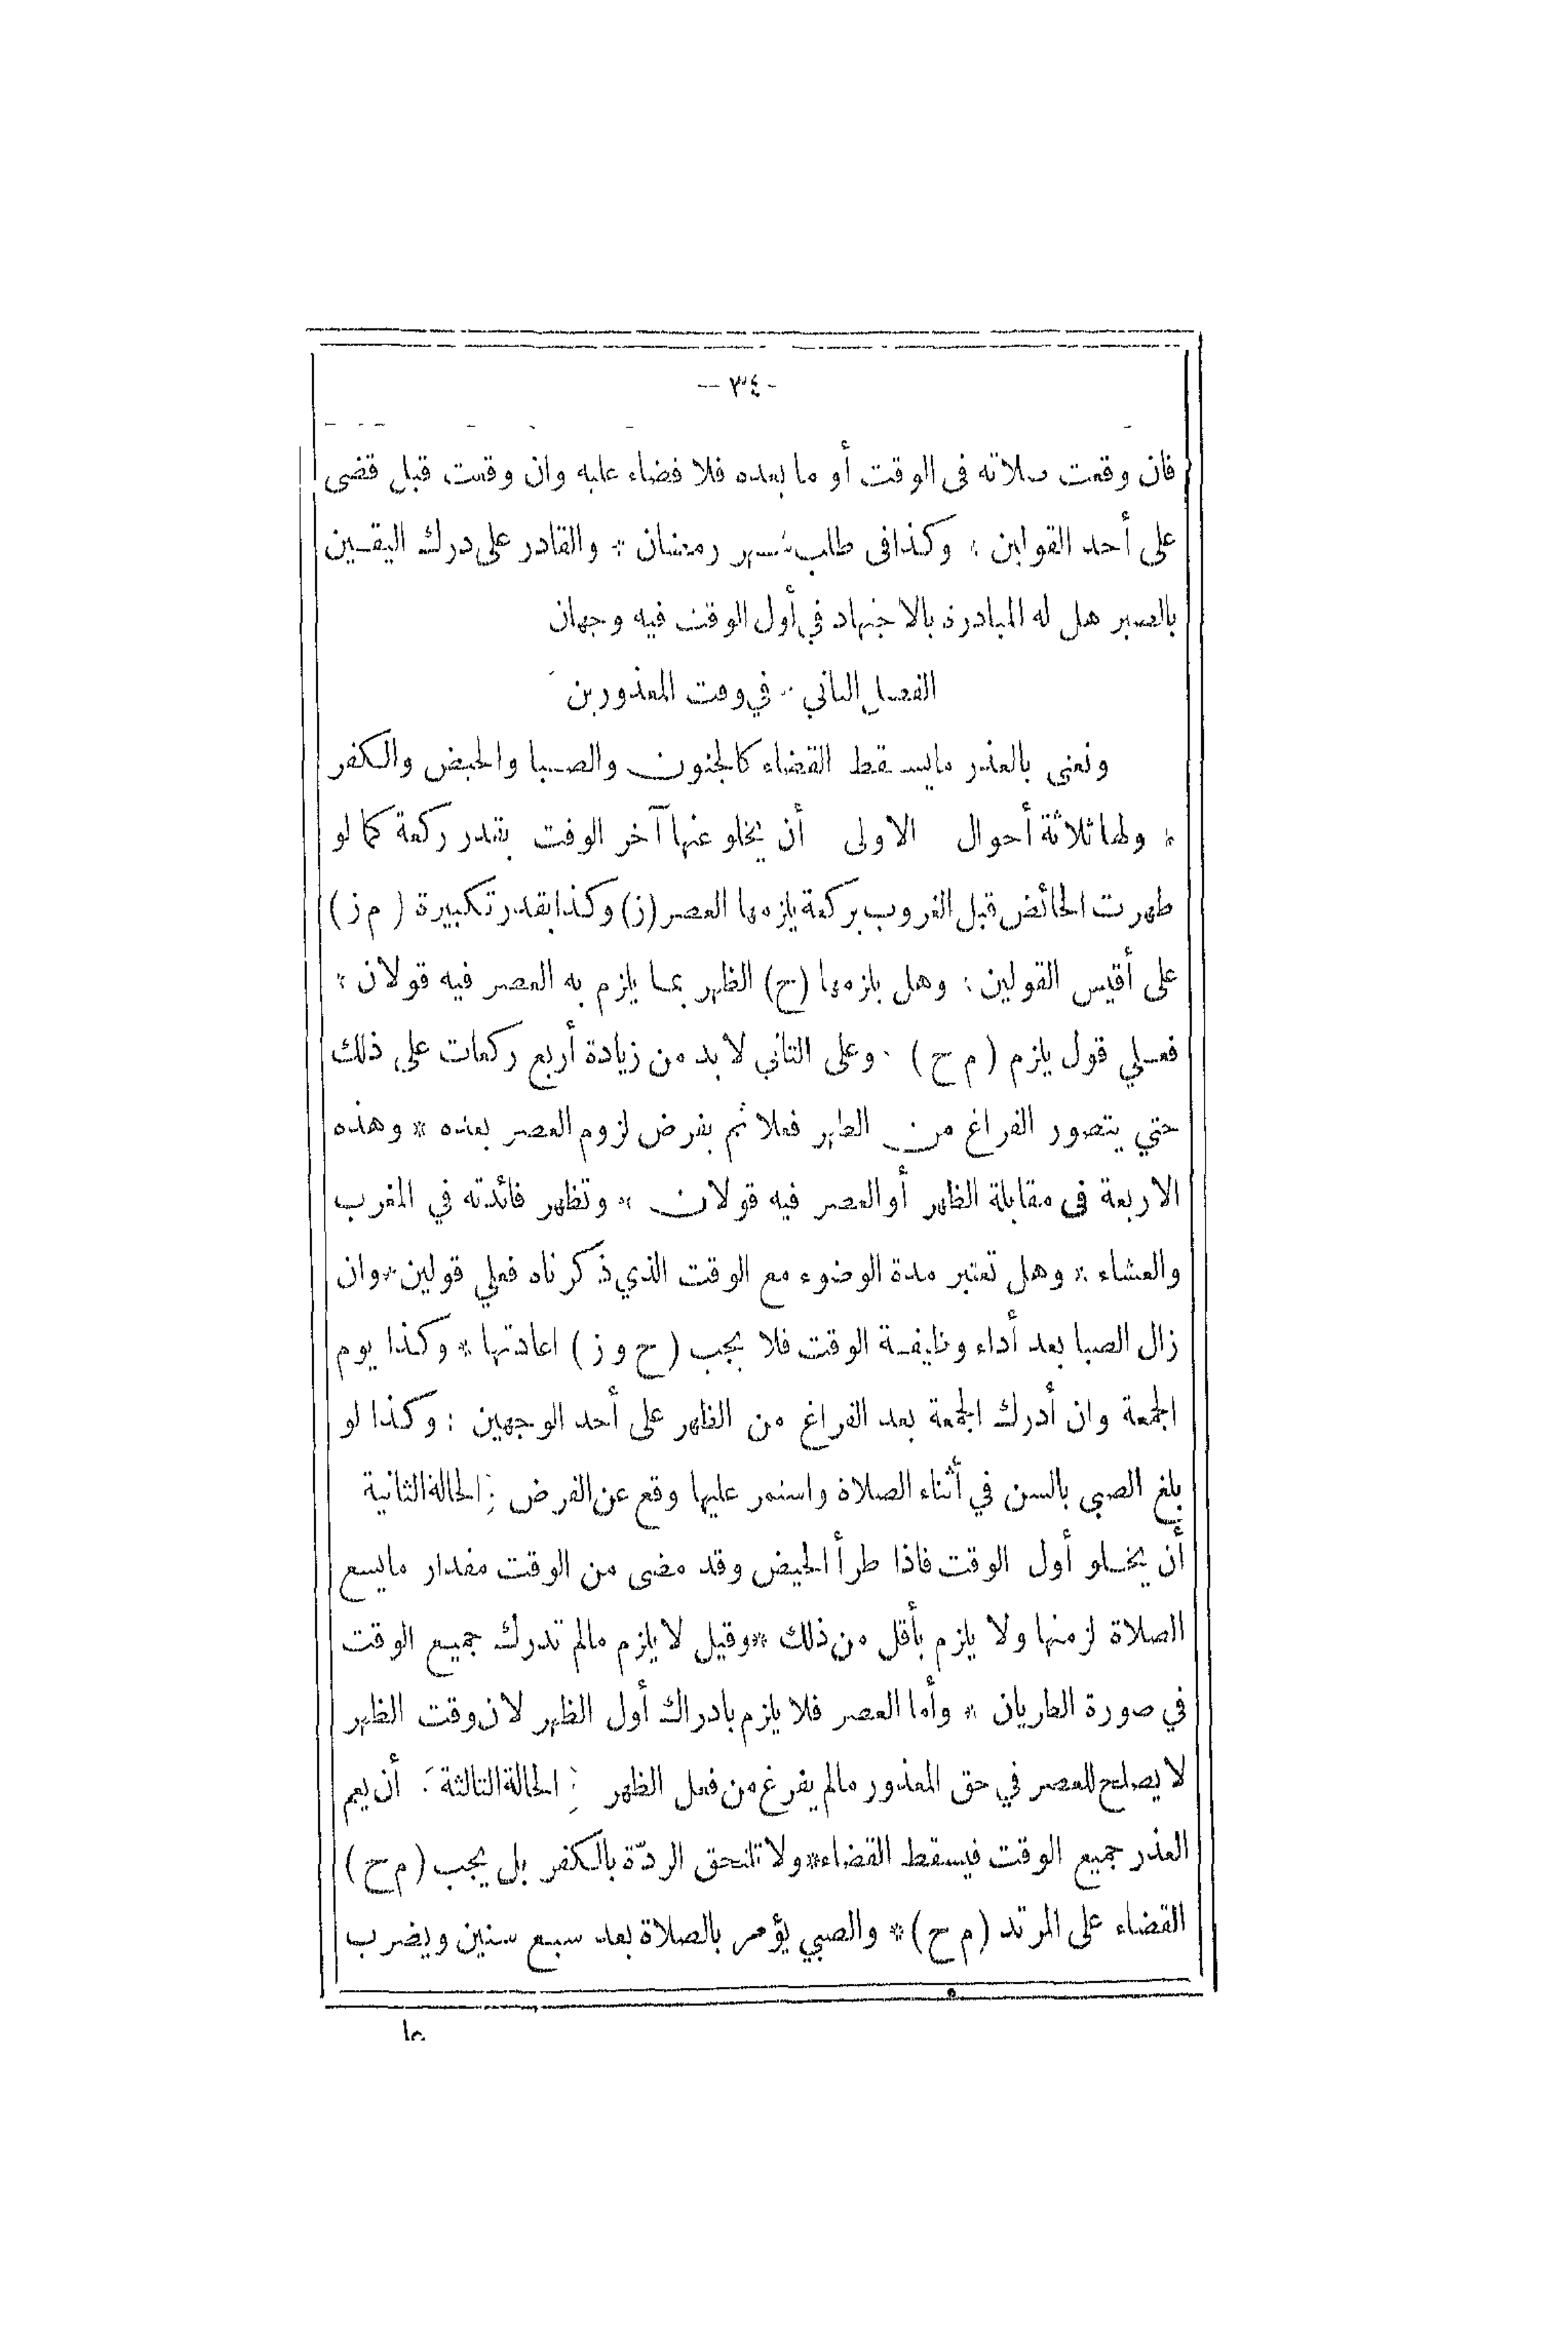 - ٣٤ -
فان وقعت صلاته فى الوقت أو ما بعده فلا قضاء عليه وان وقعت قبل قضى
على أحد القولين * وكذافى طلب شهر رمضان * والقادر على درك اليقين
بالصبر هل له المبادرة بالاجتهاد في أول الوقت فيه وجهان
الفصل الثاني * في وقت المعذورين
ونعنى بالعذر مايسقط القضاء كالجنون والصبا والحيض والكفر
* ولها ثلاثة أحوال الاولى أن يخلو عنها آخر الوقت بقدر ركعة كما لو
طهرت الحائض قبل الغروب بركعة يلزمها العصر (ز) وكذا بقدر تكبيرة (م ز)
على أقيس القولين * وهل يلزمها (ح) الظهر بما يلزم به العصر فيه قولان *
فعلي قول يلزم (م ح) * وعلى الثاني لا بد من زيادة أربع ركعات على ذلك
حتي يتصور الفراغ من الظهر فعلا ثم يفرض لزوم العصر بعده * وهذه
الاربعة فى مقابلة الظهر أو العصر فيه قولان * وتظهر فائدته في المغرب
والعشاء * وهل تعتبر مدة الوضوء مع الوقت الذي ذكرناه فعلي قولين * وان
زال الصبا بعد أداء وظيفة الوقت فلا يجب (ح و ز) اعادتها * وكذا يوم
الجمعة وان أدرك الجمعة بعد الفراغ من الظهر على أحد الوجهين * وكذا لو
بلغ الصبي بالسن في أثناء الصلاة واستمر عليها وقع عن الفرض * الحالة الثانية
أن يخلو أول الوقت فاذا طرأ الحيض وقد مضى من الوقت مقدار مايسع
الصلاة لزمتها ولا يلزم بأقل من ذلك * وقيل لا يلزم مالم تدرك جميع الوقت
في صورة الطريان * وأما العصر فلا يلزم بادراك أول الظهر لان وقت الظهر
لا يصلح للعصر في حق المعذور مالم يفرغ من فعل الظهر * الحالة الثالثة * أن يعم
العذر جميع الوقت فيسقط القضاء * ولا تلتحق الردّة بالكفر بل يجب (م ح)
القضاء على المرتد (م ح) * والصبي يؤمر بالصلاة بعد سبع سنين ويضرب